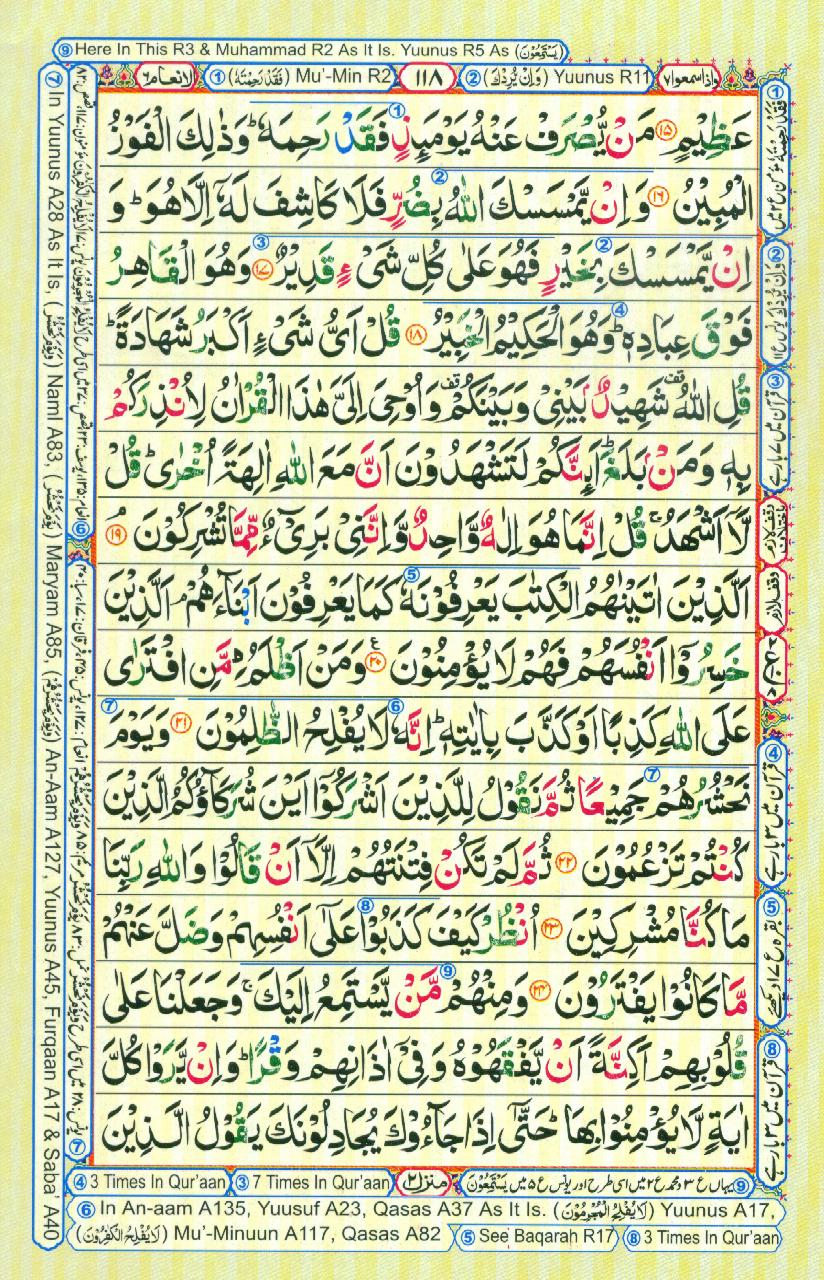 ⑨ Here In This R3 & Muhammad R2 As It Is. Yuunus R5 As (يَسْتَمِعُونَ)
واذاسمعوا٧ ② (وَاِنْ يُّرِدْكَ) Yuunus R11 ١١٨ ① (فَقَدْ رَحِمْتَهٗ) Mu'-Min R2 لانعام٦
عَظِيْمٍ ۝١٥ مَنْ يُّصْرَفْ عَنْهُ يَوْمَىِٕذٍ فَقَدْ رَحِمَهٗ ؕ وَذٰلِكَ الْفَوْزُ
الْمُبِيْنُ ۝١٦ وَاِنْ يَّمْسَسْكَ اللّٰهُ بِضُرٍّ فَلَا كَاشِفَ لَهٗۤ اِلَّا هُوَ ؕ وَ
اِنْ يَّمْسَسْكَ بِخَيْرٍ فَهُوَ عَلٰى كُلِّ شَىْءٍ قَدِيْرٌ ۝١٧ وَهُوَ الْقَاهِرُ
فَوْقَ عِبَادِهٖ ؕ وَهُوَ الْحَكِيْمُ الْخَبِيْرُ ۝١٨ قُلْ اَىُّ شَىْءٍ اَكْبَرُ شَهَادَةً ؕ
قُلِ اللّٰهُ قف شَهِيْدٌۢ بَيْنِىْ وَبَيْنَكُمْ قف وَاُوْحِىَ اِلَىَّ هٰذَا الْقُرْاٰنُ لِاُنْذِرَكُمْ
بِهٖ وَمَنْۢ بَلَغَ ؕ اَىِٕنَّكُمْ لَتَشْهَدُوْنَ اَنَّ مَعَ اللّٰهِ اٰلِهَةً اُخْرٰى ؕ قُلْ
لَّاۤ اَشْهَدُ ۚ قُلْ اِنَّمَا هُوَ اِلٰهٌ وَّاحِدٌ وَّاِنَّنِىْ بَرِىْٓءٌ مِّمَّا تُشْرِكُوْنَ ۝١٩ۘ
اَلَّذِيْنَ اٰتَيْنٰهُمُ الْكِتٰبَ يَعْرِفُوْنَهٗ كَمَا يَعْرِفُوْنَ اَبْنَآءَهُمْ ۘ اَلَّذِيْنَ
خَسِرُوْۤا اَنْفُسَهُمْ فَهُمْ لَا يُؤْمِنُوْنَ ۝٢٠ ع وَمَنْ اَظْلَمُ مِمَّنِ افْتَرٰى
عَلَى اللّٰهِ كَذِبًا اَوْ كَذَّبَ بِاٰيٰتِهٖ ؕ اِنَّهٗ لَا يُفْلِحُ الظّٰلِمُوْنَ ۝٢١ وَيَوْمَ
نَحْشُرُهُمْ جَمِيْعًا ثُمَّ نَقُوْلُ لِلَّذِيْنَ اَشْرَكُوْۤا اَيْنَ شُرَكَآؤُكُمُ الَّذِيْنَ
كُنْتُمْ تَزْعُمُوْنَ ۝٢٢ ثُمَّ لَمْ تَكُنْ فِتْنَتُهُمْ اِلَّاۤ اَنْ قَالُوْا وَاللّٰهِ رَبِّنَا
مَا كُنَّا مُشْرِكِيْنَ ۝٢٣ اُنْظُرْ كَيْفَ كَذَبُوْا عَلٰۤى اَنْفُسِهِمْ وَضَلَّ عَنْهُمْ
مَّا كَانُوْا يَفْتَرُوْنَ ۝٢٤ وَمِنْهُمْ مَّنْ يَّسْتَمِعُ اِلَيْكَ ۚ وَجَعَلْنَا عَلٰى
قُلُوْبِهِمْ اَكِنَّةً اَنْ يَّفْقَهُوْهُ وَفِىْۤ اٰذَانِهِمْ وَقْرًا ؕ وَاِنْ يَّرَوْا كُلَّ
اٰيَةٍ لَّا يُؤْمِنُوْا بِهَا ؕ حَتّٰۤى اِذَا جَآءُوْكَ يُجَادِلُوْنَكَ يَقُوْلُ الَّذِيْنَ
③ قرآن میں ۷ بار ہے
④ قرآن میں ۳ بار ہے
⑧ قرآن میں ۳ بار ہے
⑦ In Yuunus A28 As It Is, (وَيَوْمَ نَحْشُرُ) Naml A83, (يَوْمَ نَحْشُرُ) Maryam A85, (وَيَوْمَ يَحْشُرُهُمْ) An-Aam A127, Yuunus A45, Furqaan A17 & Saba' A40
④ 3 Times In Qur'aan ③ 7 Times In Qur'aan منزل٢ ⑨ یہاں ع ۳ محمد ع ۲ میں اسی طرح اور یونس ع ۵ میں يَسْتَمِعُوْنَ
⑥ In An-aam A135, Yuusuf A23, Qasas A37 As It Is. (لَا يُفْلِحُ الْمُجْرِمُوْنَ) Yuunus A17,
(لَا يُفْلِحُ الْكٰفِرُوْنَ) Mu'-Minuun A117, Qasas A82 ⑤ See Baqarah R17 ⑧ 3 Times In Qur'aan